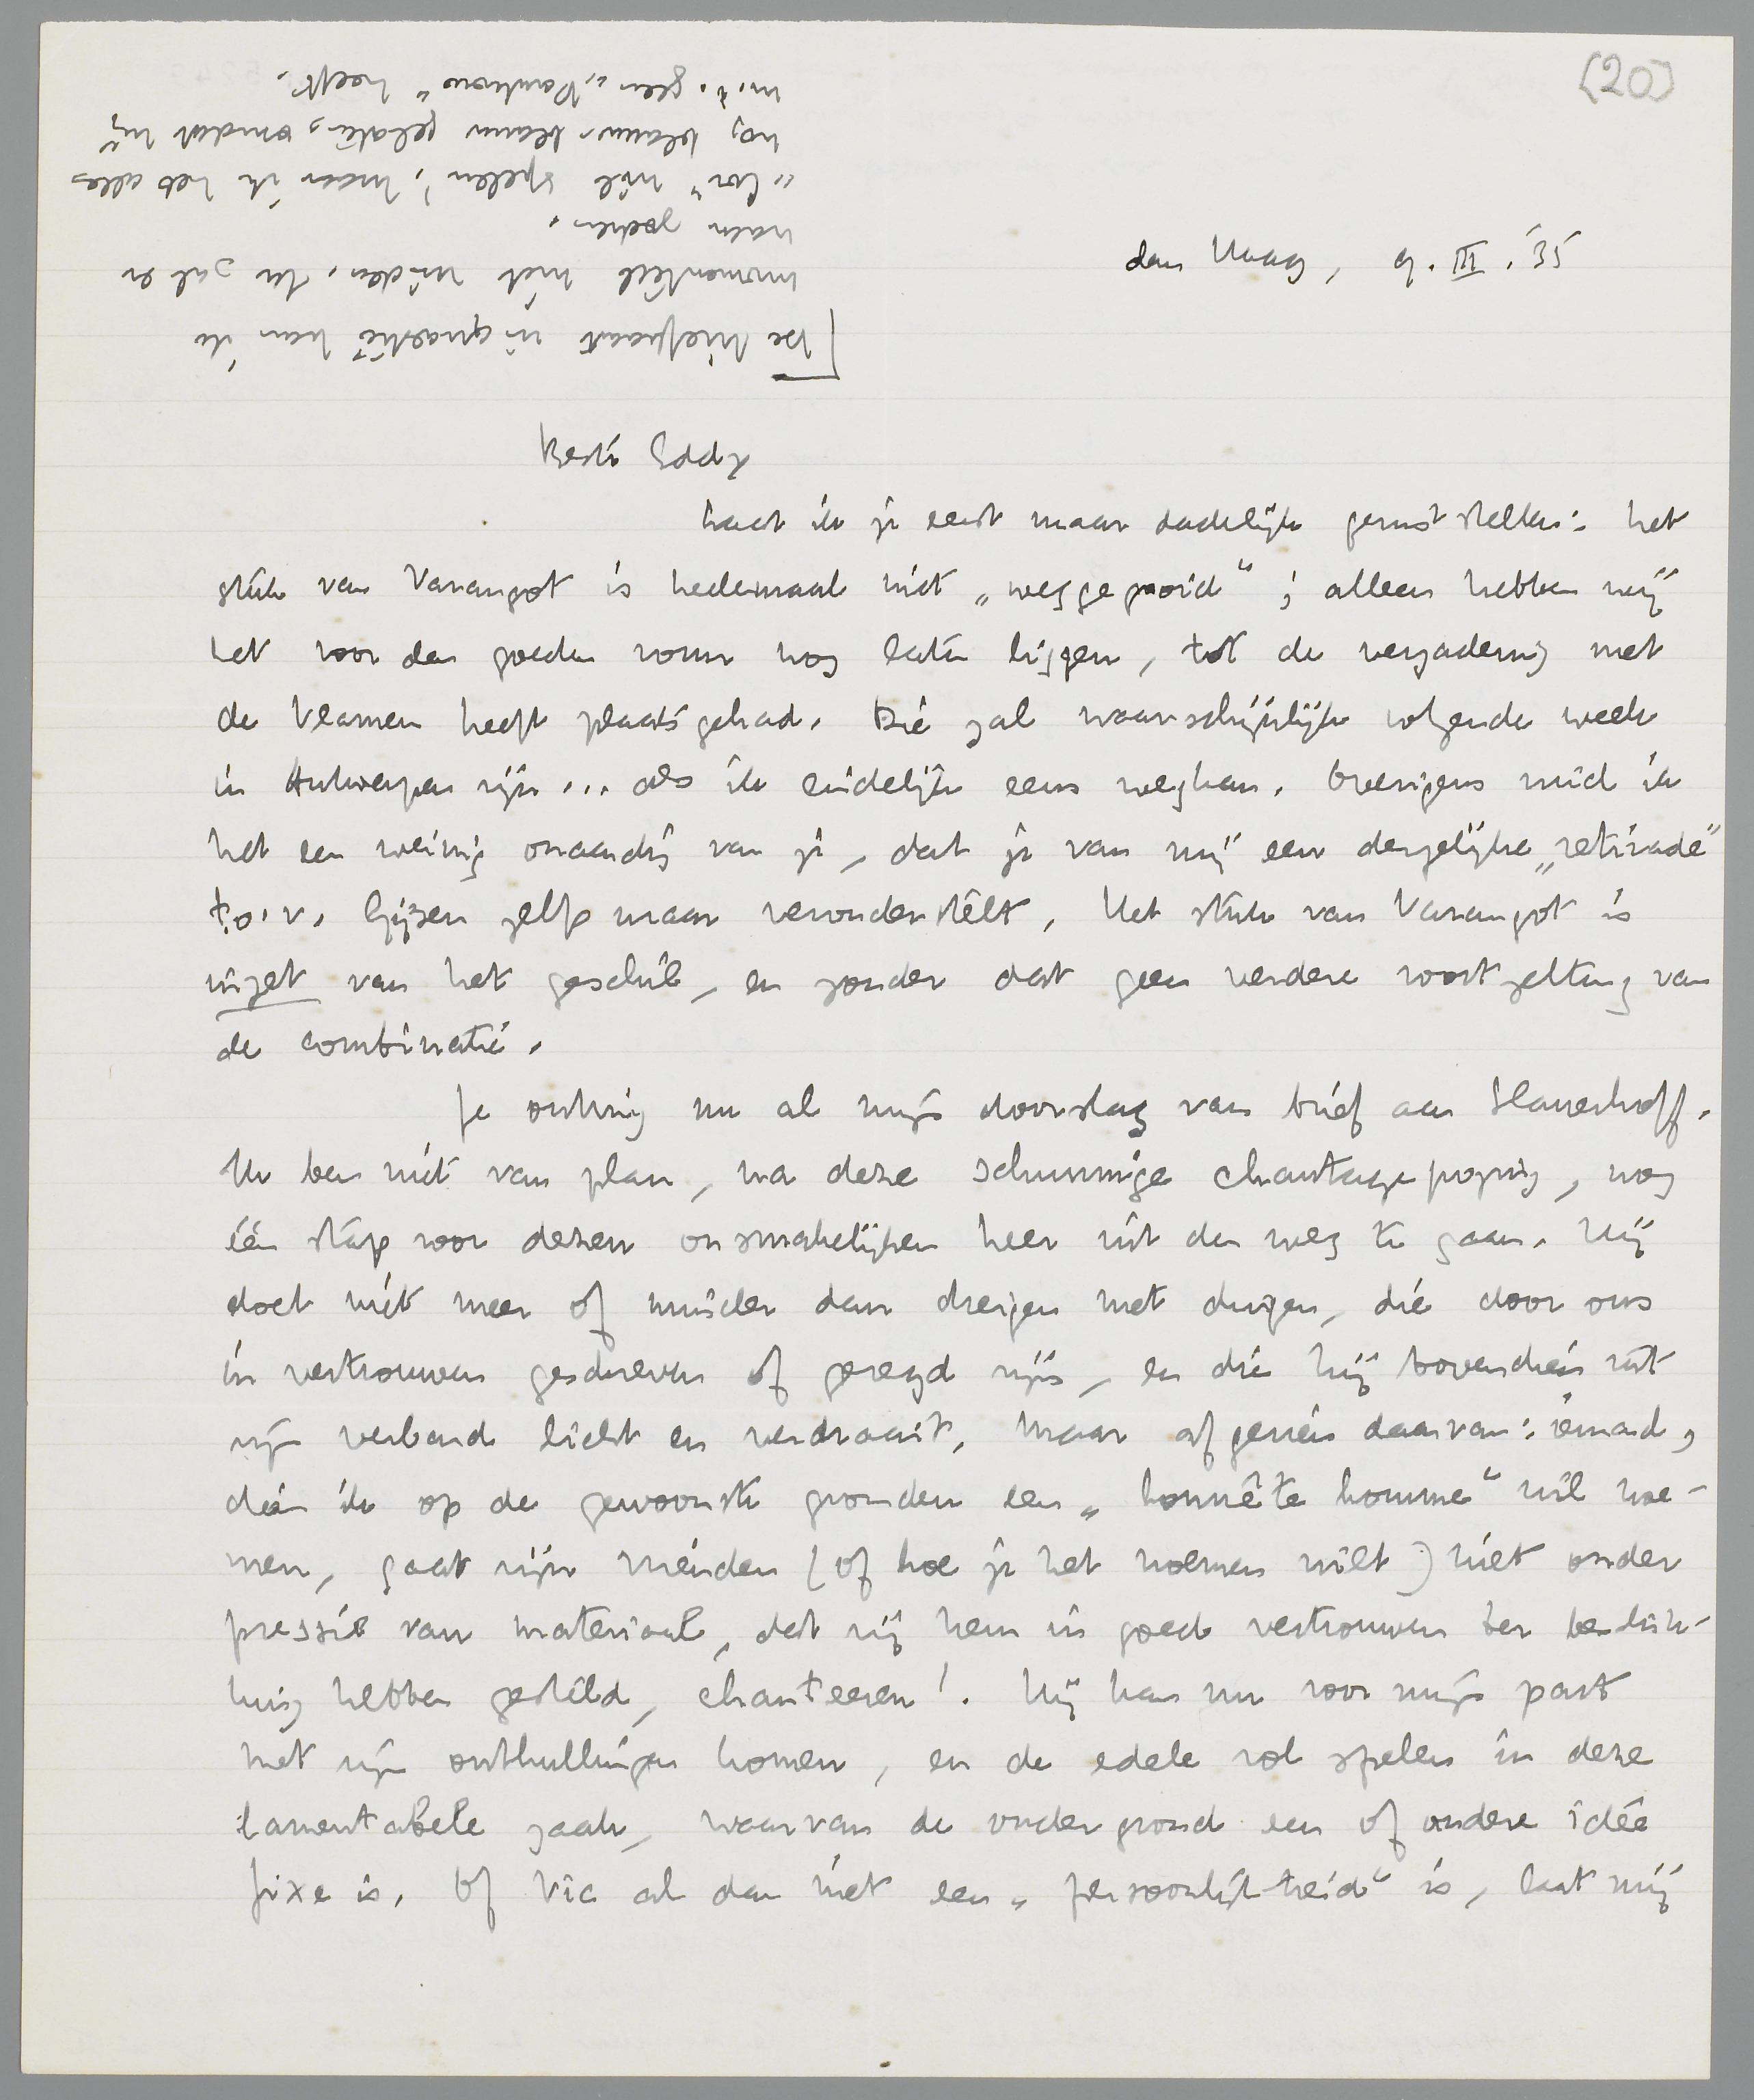 (20)
den Haag, 9.III.'35
Beste Eddy
Laat ik je eerst maar dadelijk gerust stellen: het
stuk van Varangot is heelemaal niet „weggegooid"; alleen hebben wij
het voor den goeden vorm nog laten liggen, tot de vergadering met
de Vlamen heeft plaats gehad. Die zal waarschijnlijk volgende week
in Antwerpen zijn... als ik eindelijk eens weg kan. Overigens vind ik
het een weinig onaardig van je, dat je van mij een dergelijke „retirade"
t.o.v. Gijsen zelf maar veronderstelt. Het stuk van Varangot is
inzet van het geschil, en zonder dat geen verdere voortzetting van
de combinatie.
Je ontving nu al mijn doorslag van brief aan Slauerhoff.
Ik ben niet van plan, na deze schunnige chantagepoging, nog
één stap voor dezen onsmakelijken heer uit den weg te gaan. Hij
doet niet meer of minder dan dreigen met dingen, die door ons
in vertrouwen geschreven of gezegd zijn, en die hij bovendien uit
zijn verband licht en verdraait. Maar afgezien daarvan: iemand,
dien ik op de gewoonste gronden een „honnête homme" wil noe-
men, gaat zijn vrienden (of hoe je het noemen wilt) niet onder
pressie van materiaal, dat zij hem in goed vertrouwen ter beschik-
king hebben gesteld, chanteeren! Hij kan nu voor mijn part
met zijn onthullingen komen, en de edele rol spelen in deze
lamentabele zaak, waarvan de ondergrond een of andere idée
fixe is. Of Vic al dan niet een „persoonlijkheid" is, laat mij
[De briefkaart in quaestie kan ik
momenteel niet vinden. Ik zal er
naar zoeken.
wil spelen, maar ik heb alles
nog blauw blauw gelaten, omdat hij
m.i. geen „Pantheon" heeft.